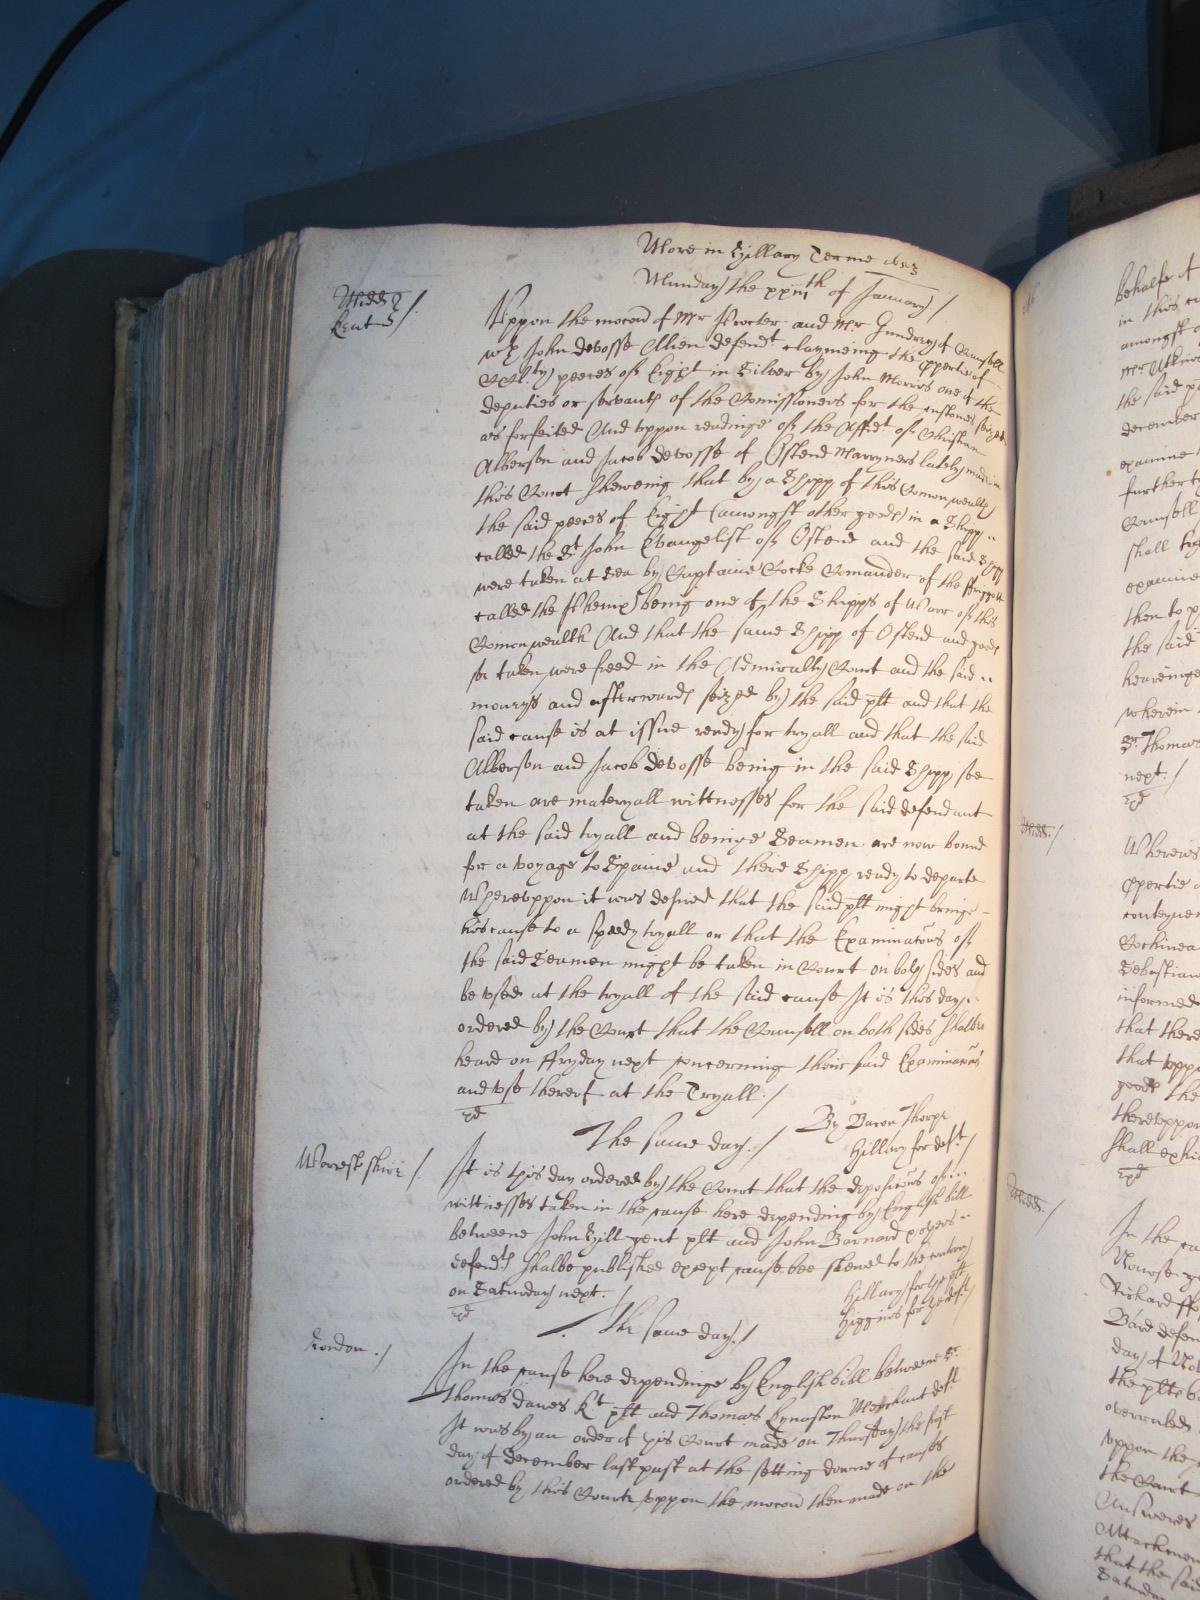 More in Hillary Terme 1653
Munday the xxiiith of January /
Midd
Kent /
Uppon the mocon of Mr Procter and Mr Gundry of Counsell
wth John devosse Alien defendt claymeing the ppertie of
peeces of Eight in Silver by John Morris one of the
deputies or servants of the Comissioners for the customes seized
as forfeited And uppon readinge of the Affidt of Christian
Alberson and Jacob devosse of Ostend Marryners lately made in
this Court shewing that by a Shipp of this Comonwealth
the said peeces of Eight (amongst other goods) in a Shipp
called the St John Evangelist of Ostend and the said Shipp
were taken at Sea by Captaine Cocke Comander of the ffriggott
called the Phenix being one of the Shipps of Warr of this
Comonwealth And that the same Shipp of Ostend and goods
so taken were freed in the Admiralty Court and the said
moneys and afterwards seized by the said plt and that the
said cause is at issue ready for tryall and that the said
Alberson and Jacob devosse being in the said Shipp soe
taken are materyall wittnesses for the said defendant
at the said tryall and beinge Seamen are now bound
for a voyage to Spaine and there Shipp ready to departe
Whereuppon it was desired that the said plt might bringe
his cause to a speedy tryall or that the Examinacons of
the said Seamen might be taken in Court on both sides and
be used at the tryall of the said cause It is this day
ordered by the Court that the Counsell on both sides shalbe
heard on ffryday next concerning their said Examinacons
and use thereof at the Tryall /
By Baron Thorpe
The same day / Hillary for deft /
Worcestshire /
It is this day ordered by the Court that the deposicons of
wittnesses taken in the cause here depending by English bill
betweene John Hill gent plt and John Barnard
defendts shalbe published except cause bee shewed to the contrary
on Saturday next. / Hillary for ye plt
Higgins for ye deft
The same day /
London /
In the cause here dependinge by English bill betweene Sr
Thomas dawes Kt plt and Thomas Kynaston Merchant deft
It was by an order of this Court made on Thursday the first
day of December last past at the setting downe of causes
ordered by this Courte uppon the mocon then made on the
behalfe of
in this
amongst
the said
december
examine
further
Counsell
shall
examine
then to
the said
heareinge
wherein
Sr Thomas
next. /
Midd /
Whereas
ppertie
conteyne
Sebastian
informed
that there
that uppon
goods the
thereuppon
shall exhi
Midd /
In the
Richard
Bard defen
day of
the plts
overruled
uppon the
the Court
Answeres
Attachment
that the said
Saturday